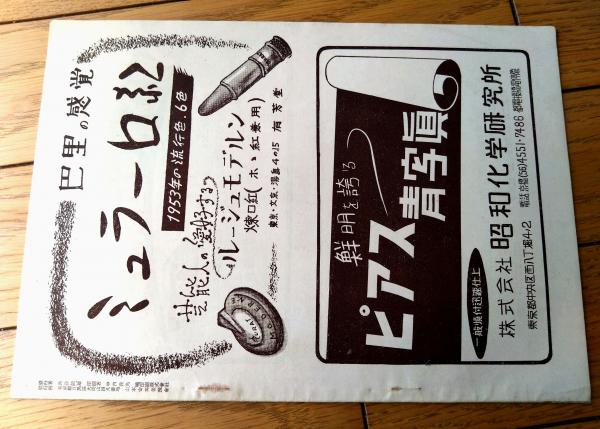 巴里の感覚
ミュラー口紅
1953年の流行色.6色
芸能人の愛好する
ルージュモデルン
煉口紅(ホヽ紅兼用)
東京・文京・湯島4の15 有芳堂
鮮明を誇る
ピアス青写眞
一般焼付迅速仕上
株式会社 昭和化学研究所
東京都中央区西八丁堀4-2
電話京橋(56)4551・7486